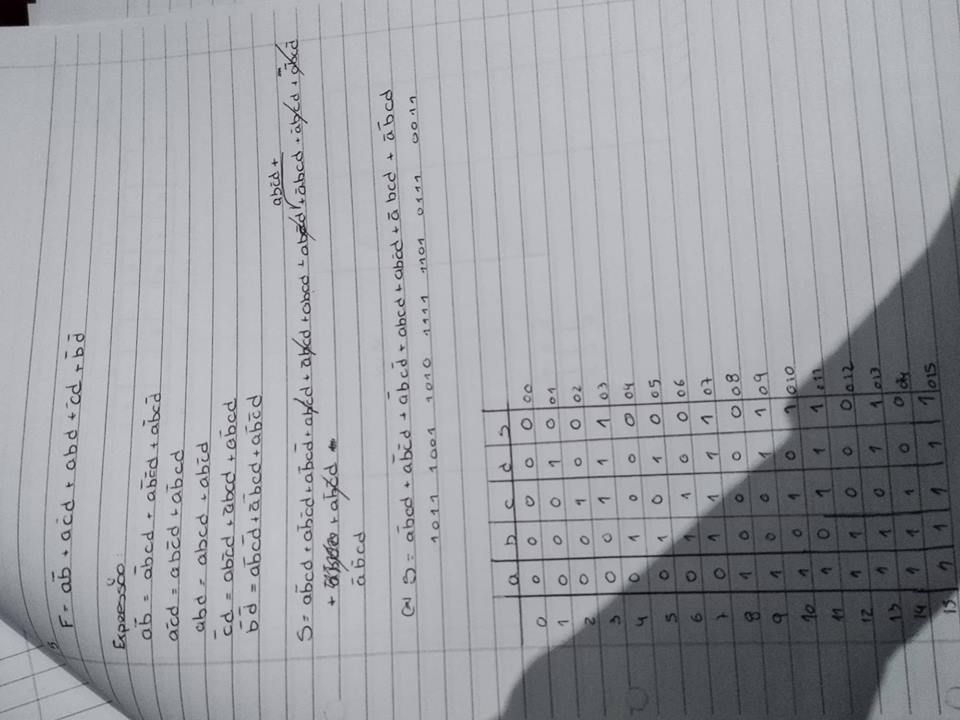 5
F = ab̄ + ac̄d + abd + c̄d + b̄d̄
Expressão:
ab̄ = ab̄cd + ab̄c̄d + ab̄cd̄
ac̄d = abc̄d + ab̄cd
abd = abcd + abc̄d
c̄d = abc̄d + ābcd + ab̄cd
b̄d̄ = ab̄cd̄ + āb̄cd + ab̄c̄d
abc̄d +
S = ab̄cd + ab̄c̄d + ab̄cd̄ + abc̄d + ab̄cd + abcd + abc̄d + ābcd + ab̄cd + ab̄cd̄
+ + ab̄c̄d
āb̄cd
S = ab̄cd + ab̄c̄d + ab̄cd̄ + abcd + abc̄d + ābcd + āb̄cd
1011 1001 1010 1111 1101 0111 0011
a b c d S
0 0 0 0 0 0 00
1 0 0 0 1 0 01
2 0 0 1 0 0 02
3 0 0 1 1 1 03
4 0 1 0 0 0 04
5 0 1 0 1 0 05
6 0 1 1 0 0 06
7 0 1 1 1 1 07
8 1 0 0 0 0 08
9 1 0 0 1 1 09
10 1 0 1 0 1 010
11 1 0 1 1 1 011
12 1 1 0 0 0 012
13 1 1 0 1 1 013
14 1 1 1 0 0 014
15 1 1 1 1 1 015